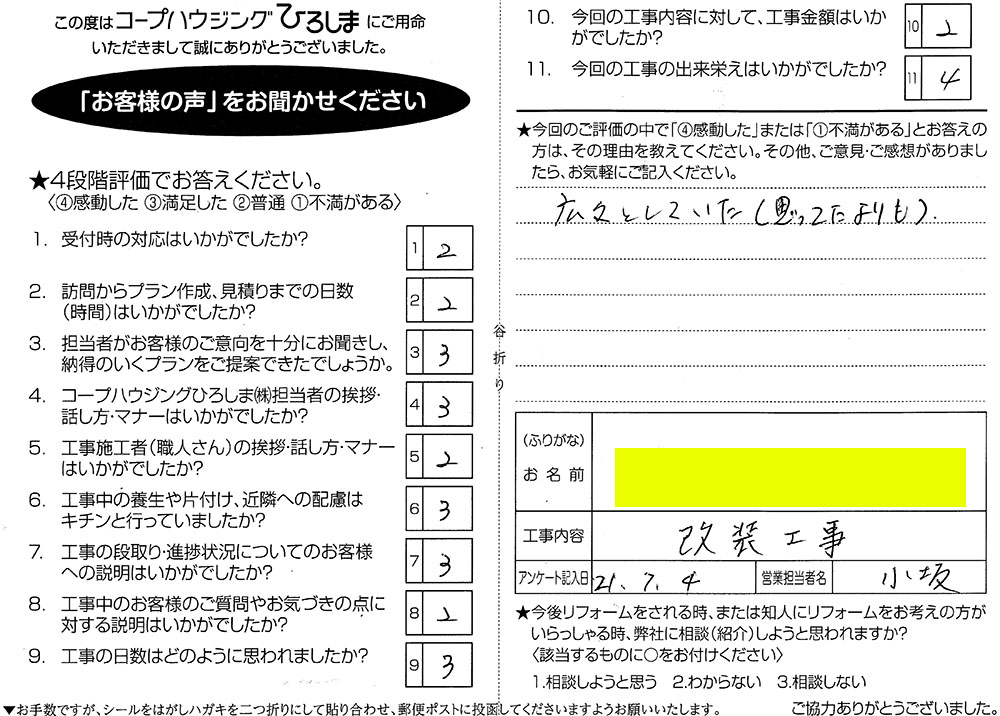 この度はコープハウジングひろしまにご用命
いただきまして誠にありがとうございました。
「お客様の声」をお聞かせください
★4段階評価でお答えください。
〈④感動した ③満足した ②普通 ①不満がある〉
1. 受付時の対応はいかがでしたか?
1 2
2. 訪問からプラン作成、見積りまでの日数
(時間)はいかがでしたか?
2 2
3. 担当者がお客様のご意向を十分にお聞きし、
納得のいくプランをご提案できたでしょうか。
3 3
4. コープハウジングひろしま㈱担当者の挨拶・
話し方・マナーはいかがでしたか?
4 3
5. 工事施工者(職人さん)の挨拶・話し方・マナー
はいかがでしたか?
5 2
6. 工事中の養生や片付け、近隣への配慮は
キチンと行っていましたか?
6 3
7. 工事の段取り・進捗状況についてのお客様
への説明はいかがでしたか?
7 3
8. 工事中のお客様のご質問やお気づきの点に
対する説明はいかがでしたか?
8 2
9. 工事の日数はどのように思われましたか?
9 3
▼お手数ですが、シールをはがしハガキを二つ折りにして貼り合わせ、郵便ポストに投函してくださいますようお願いいたします。
谷折り
10. 今回の工事内容に対して、工事金額はいか
がでしたか?
10 2
11. 今回の工事の出来栄えはいかがでしたか?
11 4
★今回のご評価の中で「④感動した」または「①不満がある」とお答えの
方は、その理由を教えてください。その他、ご意見・ご感想がありまし
たら、お気軽にご記入ください。
広々としていた(思ってたよりも).
(ふりがな)
お名前
工事内容 改装工事
アンケート記入日 21.7.4 営業担当者名 小坂
★今後リフォームをされる時、または知人にリフォームをお考えの方が
いらっしゃる時、弊社に相談(紹介)しようと思われますか?
〈該当するものに○をお付けください〉
1.相談しようと思う 2.わからない 3.相談しない
ご協力ありがとうございました。